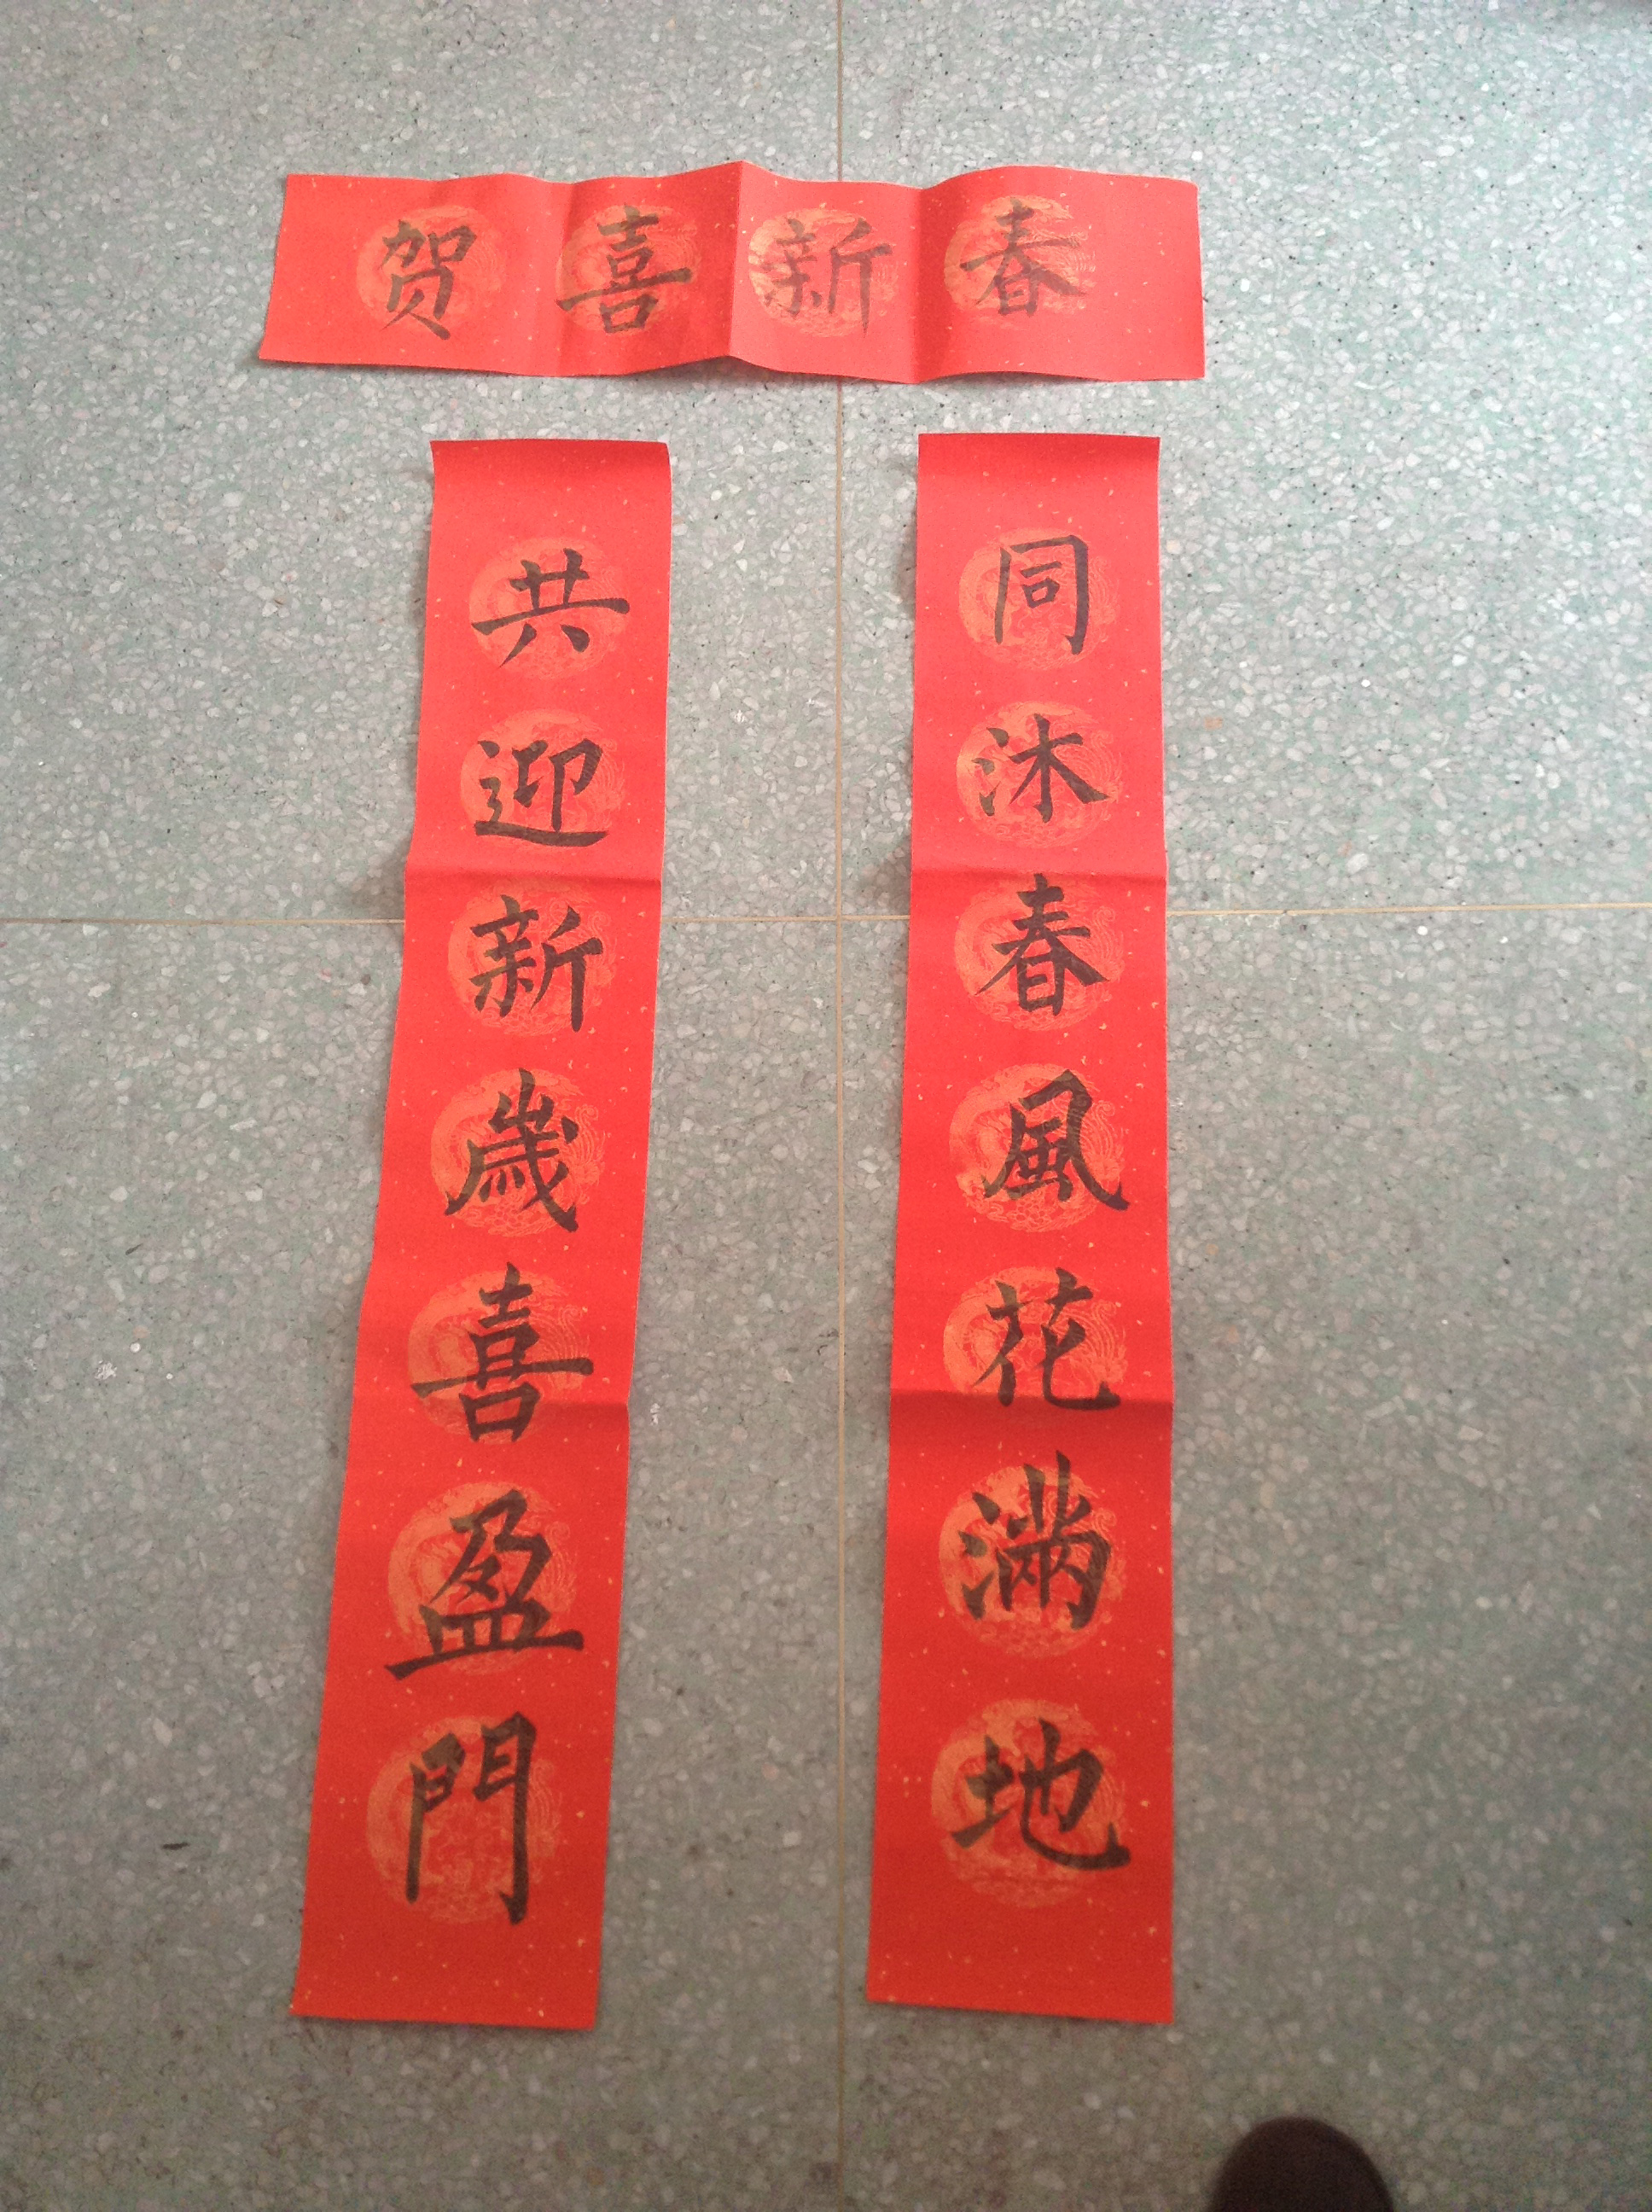 贺喜新春
同沐春風花滿地
共迎新歲喜盈門